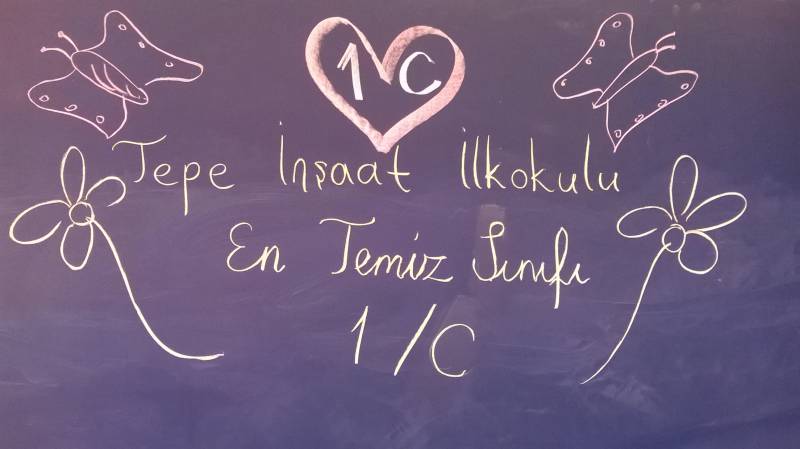 1 C
Tepe İnşaat İlkokulu
En Temiz Sınıfı
1/C